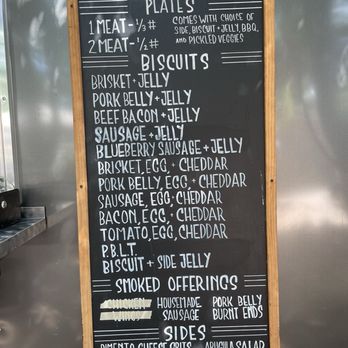 PLATES
1 MEAT - 1/3 # COMES WITH CHOICE OF
SIDE, BISCUIT + JELLY, BBQ,
2 MEAT - 1/2 # AND PICKLED VEGGIES
BISCUITS
BRISKET + JELLY
PORK BELLY + JELLY
BEEF BACON + JELLY
SAUSAGE + JELLY
BLUEBERRY SAUSAGE + JELLY
BRISKET, EGG, + CHEDDAR
PORK BELLY, EGG, + CHEDDAR
SAUSAGE, EGG, CHEDDAR
BACON, EGG, + CHEDDAR
TOMATO, EGG, CHEDDAR
P.B.L.T.
BISCUIT + SIDE JELLY
SMOKED OFFERINGS
CHICKEN HOUSEMADE PORK BELLY
WINGS SAUSAGE BURNT ENDS
SIDES
PIMENTO CHEESE GRITS ARUGULA SALAD